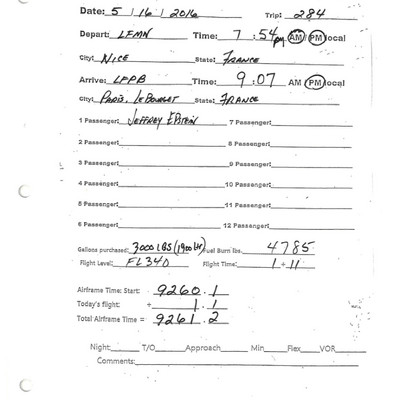 Date: 5 / 16 / 2016 Trip: 284
Depart: LFMN Time: 7 : 54 pm AM / PM local
City: NICE State: FRANCE
Arrive: LFPB Time: 9 : 07 AM PM local
City: PARIS, LEBOURGET State: FRANCE
1 Passenger: JEFFREY EPSTEIN 7 Passenger:
2 Passenger: 8 Passenger:
3 Passenger: 9 Passenger:
4 Passenger: 10 Passenger:
5 Passenger: 11 Passenger:
6 Passenger: 12 Passenger:
Gallons purchased: 3000 LBS (1900 Ltr) Fuel Burn lbs. 4785
Flight Level: FL340 Flight Time: 1 + 11
Airframe Time: Start: 9260.1
Today's flight: + 1.1
Total Airframe Time = 9261.2
Night: T/O Approach Min Flex VOR
Comments: